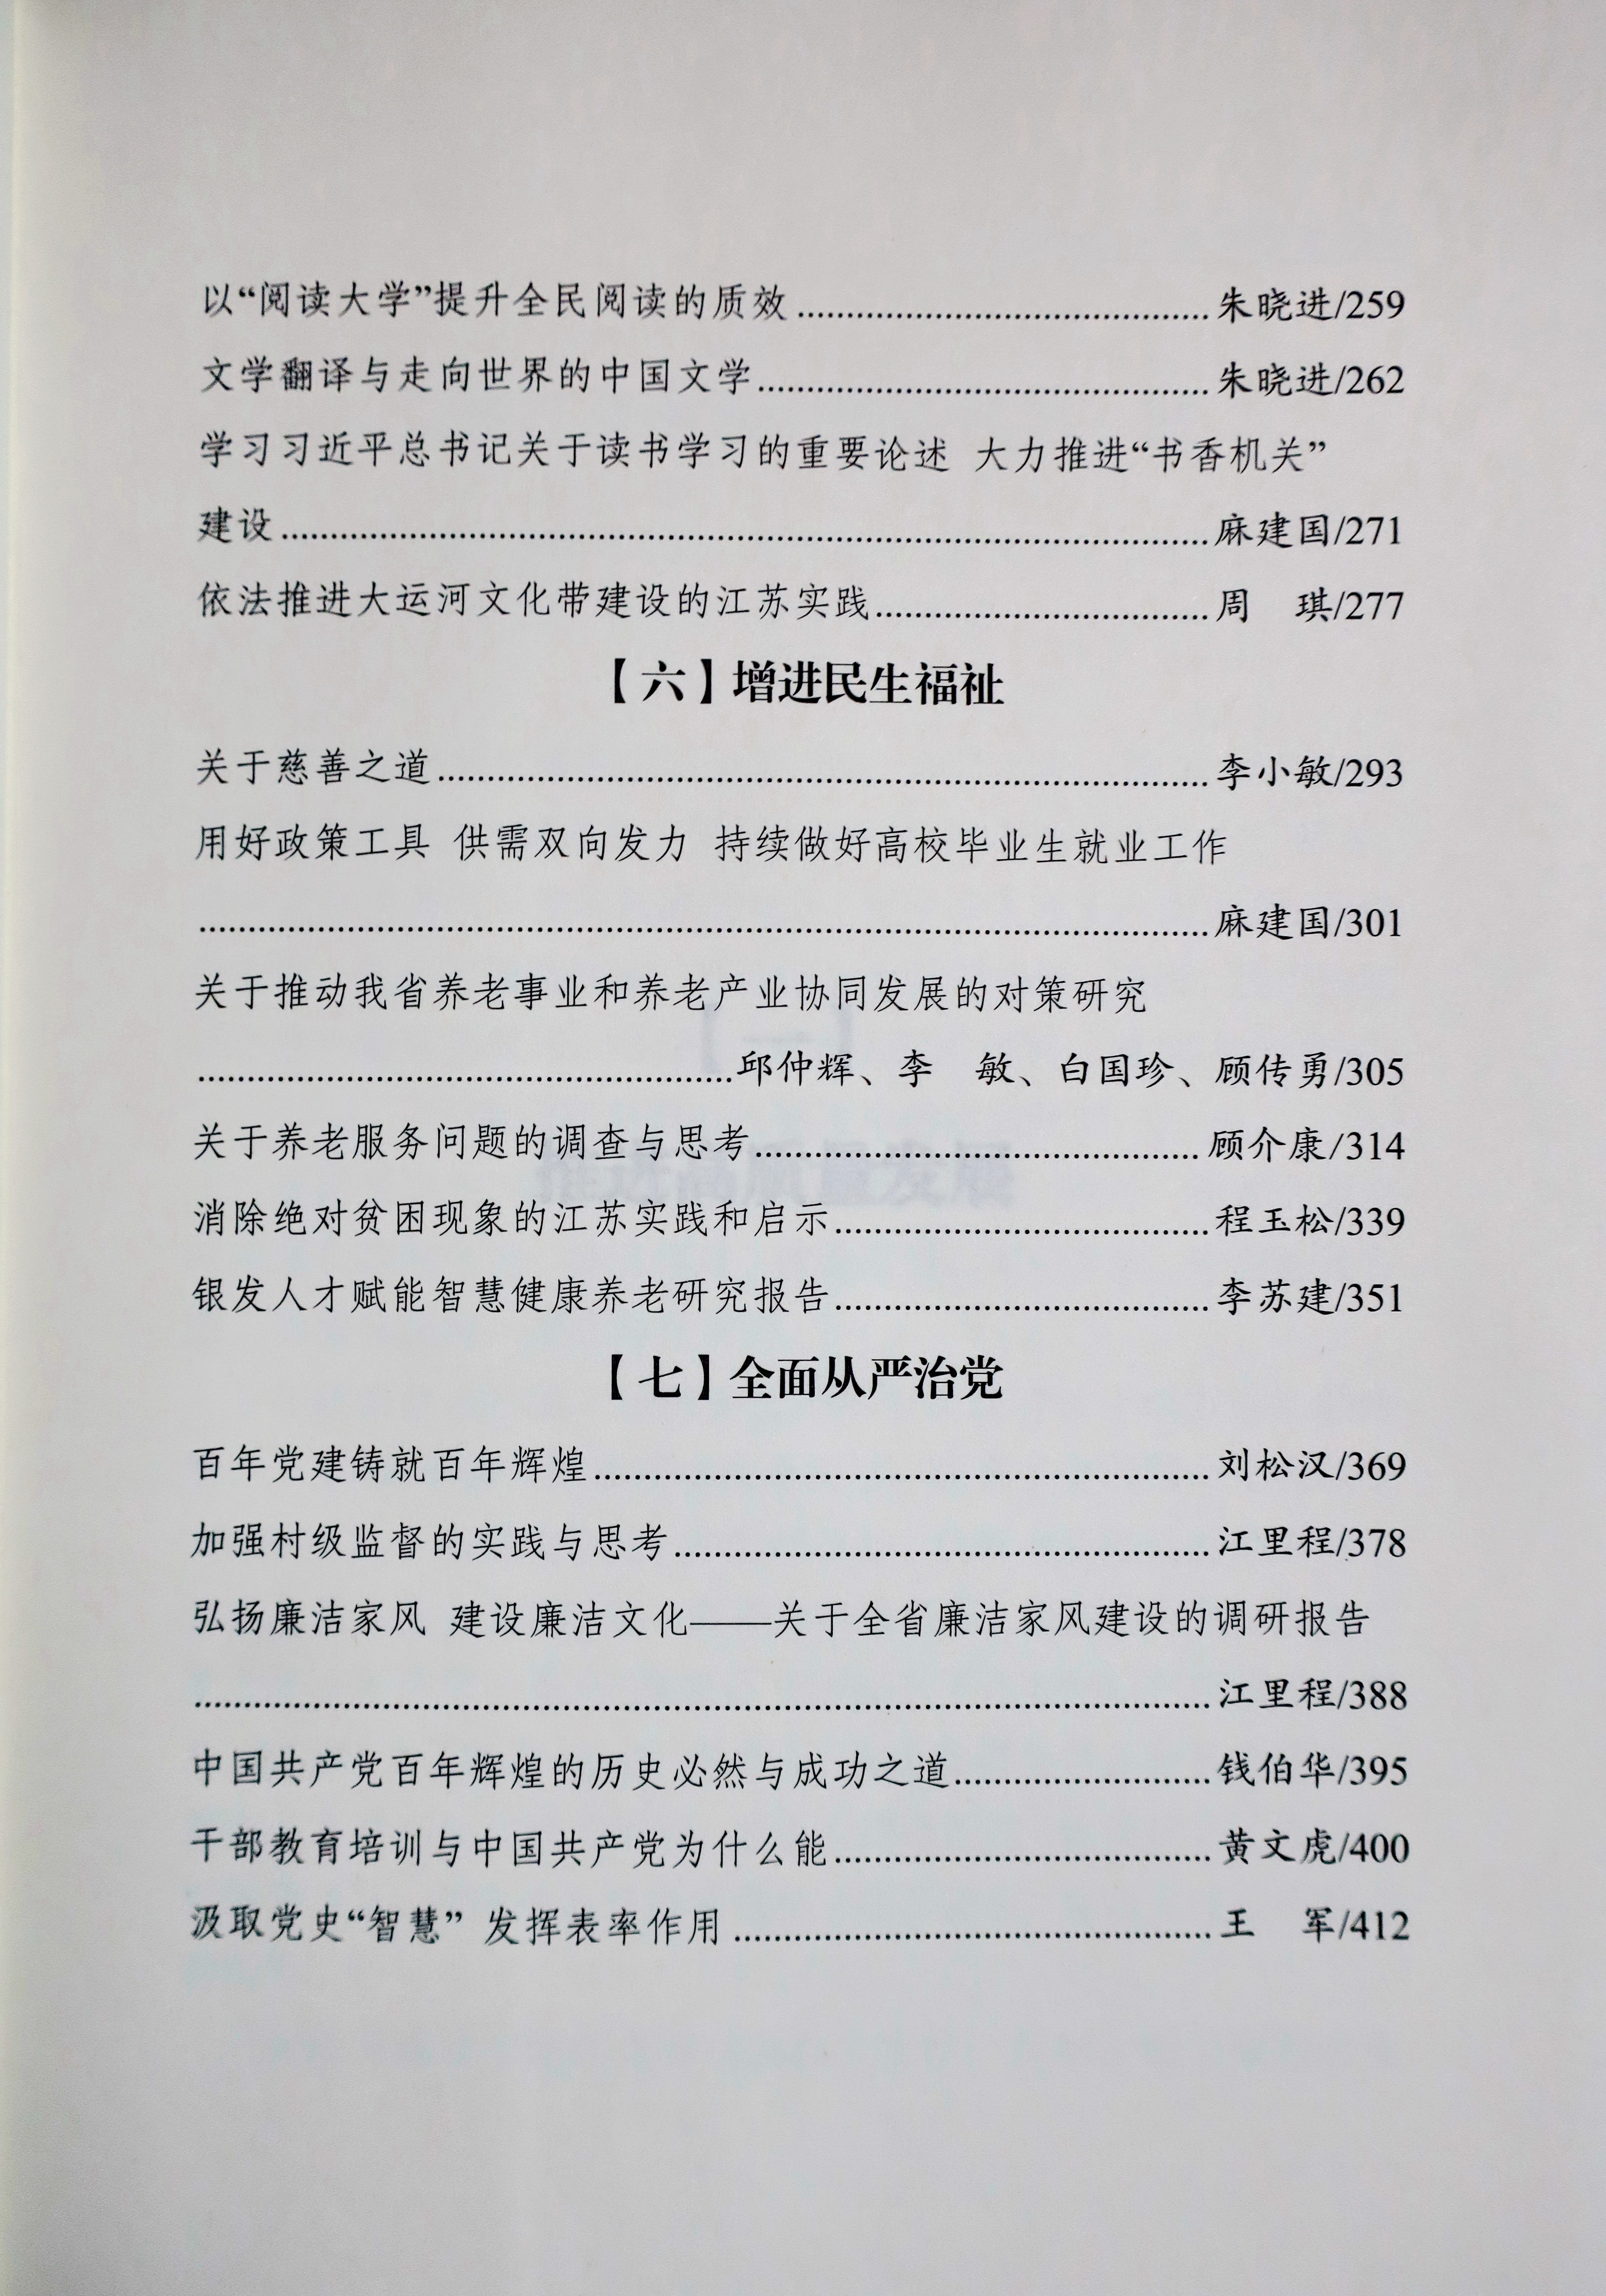 以“阅读大学”提升全民阅读的质效……………………………………朱晓进/259
文学翻译与走向世界的中国文学……………………………………朱晓进/262
学习习近平总书记关于读书学习的重要论述 大力推进“书香机关”
建设……………………………………麻建国/271
依法推进大运河文化带建设的江苏实践……………………………………周 琪/277
【六】增进民生福祉
关于慈善之道……………………………………李小敏/293
用好政策工具 供需双向发力 持续做好高校毕业生就业工作
……………………………………麻建国/301
关于推动我省养老事业和养老产业协同发展的对策研究
……………………………………邱仲辉、李 敏、白国珍、顾传勇/305
关于养老服务问题的调查与思考……………………………………顾介康/314
消除绝对贫困现象的江苏实践和启示……………………………………程玉松/339
银发人才赋能智慧健康养老研究报告……………………………………李苏建/351
【七】全面从严治党
百年党建铸就百年辉煌……………………………………刘松汉/369
加强村级监督的实践与思考……………………………………江里程/378
弘扬廉洁家风 建设廉洁文化——关于全省廉洁家风建设的调研报告
……………………………………江里程/388
中国共产党百年辉煌的历史必然与成功之道……………………………………钱伯华/395
干部教育培训与中国共产党为什么能……………………………………黄文虎/400
汲取党史“智慧” 发挥表率作用……………………………………王 军/412